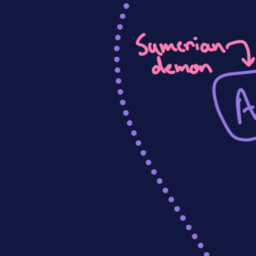 Sumerian
demon
A